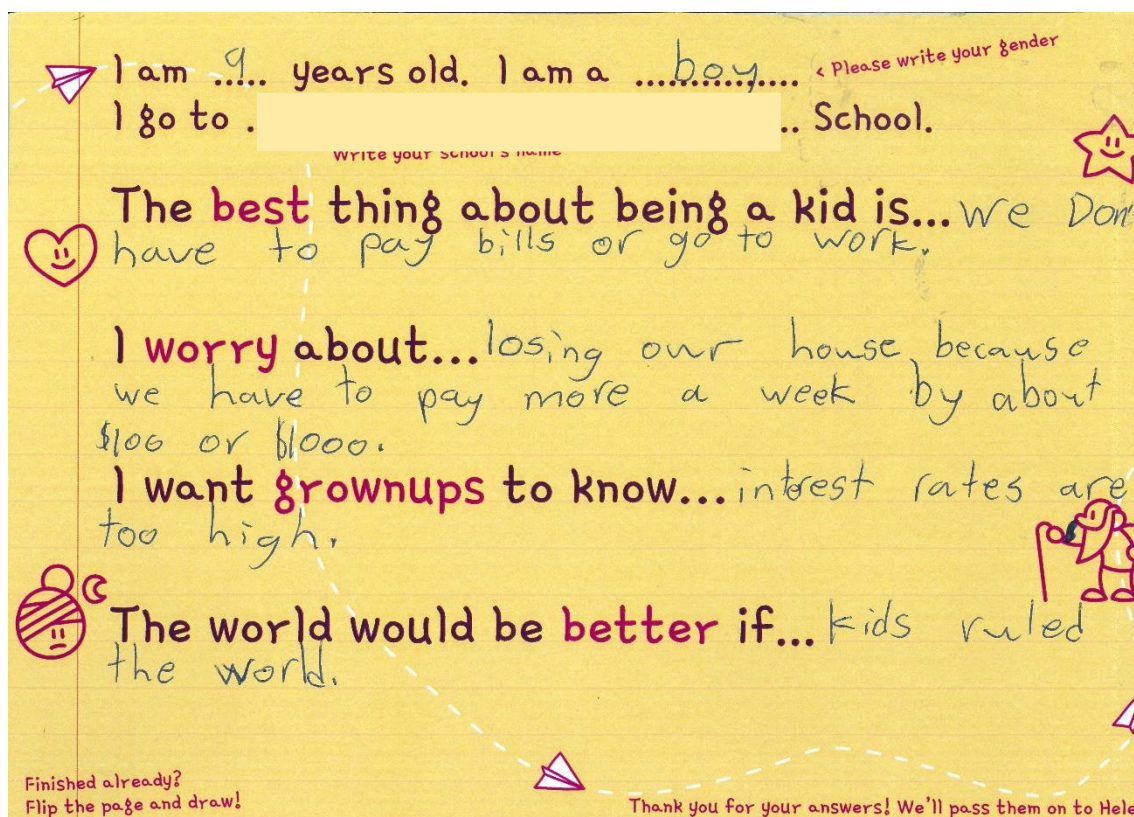 I am 9 years old. I am a boy < Please write your gender
I go to ... School.
Write your school's name
The best thing about being a kid is... we Don
have to pay bills or go to work.
I worry about... losing our house because
we have to pay more a week by about
$100 or $1000.
I want grownups to know... intrest rates are
too high.
The world would be better if... kids ruled
the world.
Finished already?
Flip the page and draw!
Thank you for your answers! We'll pass them on to Hele